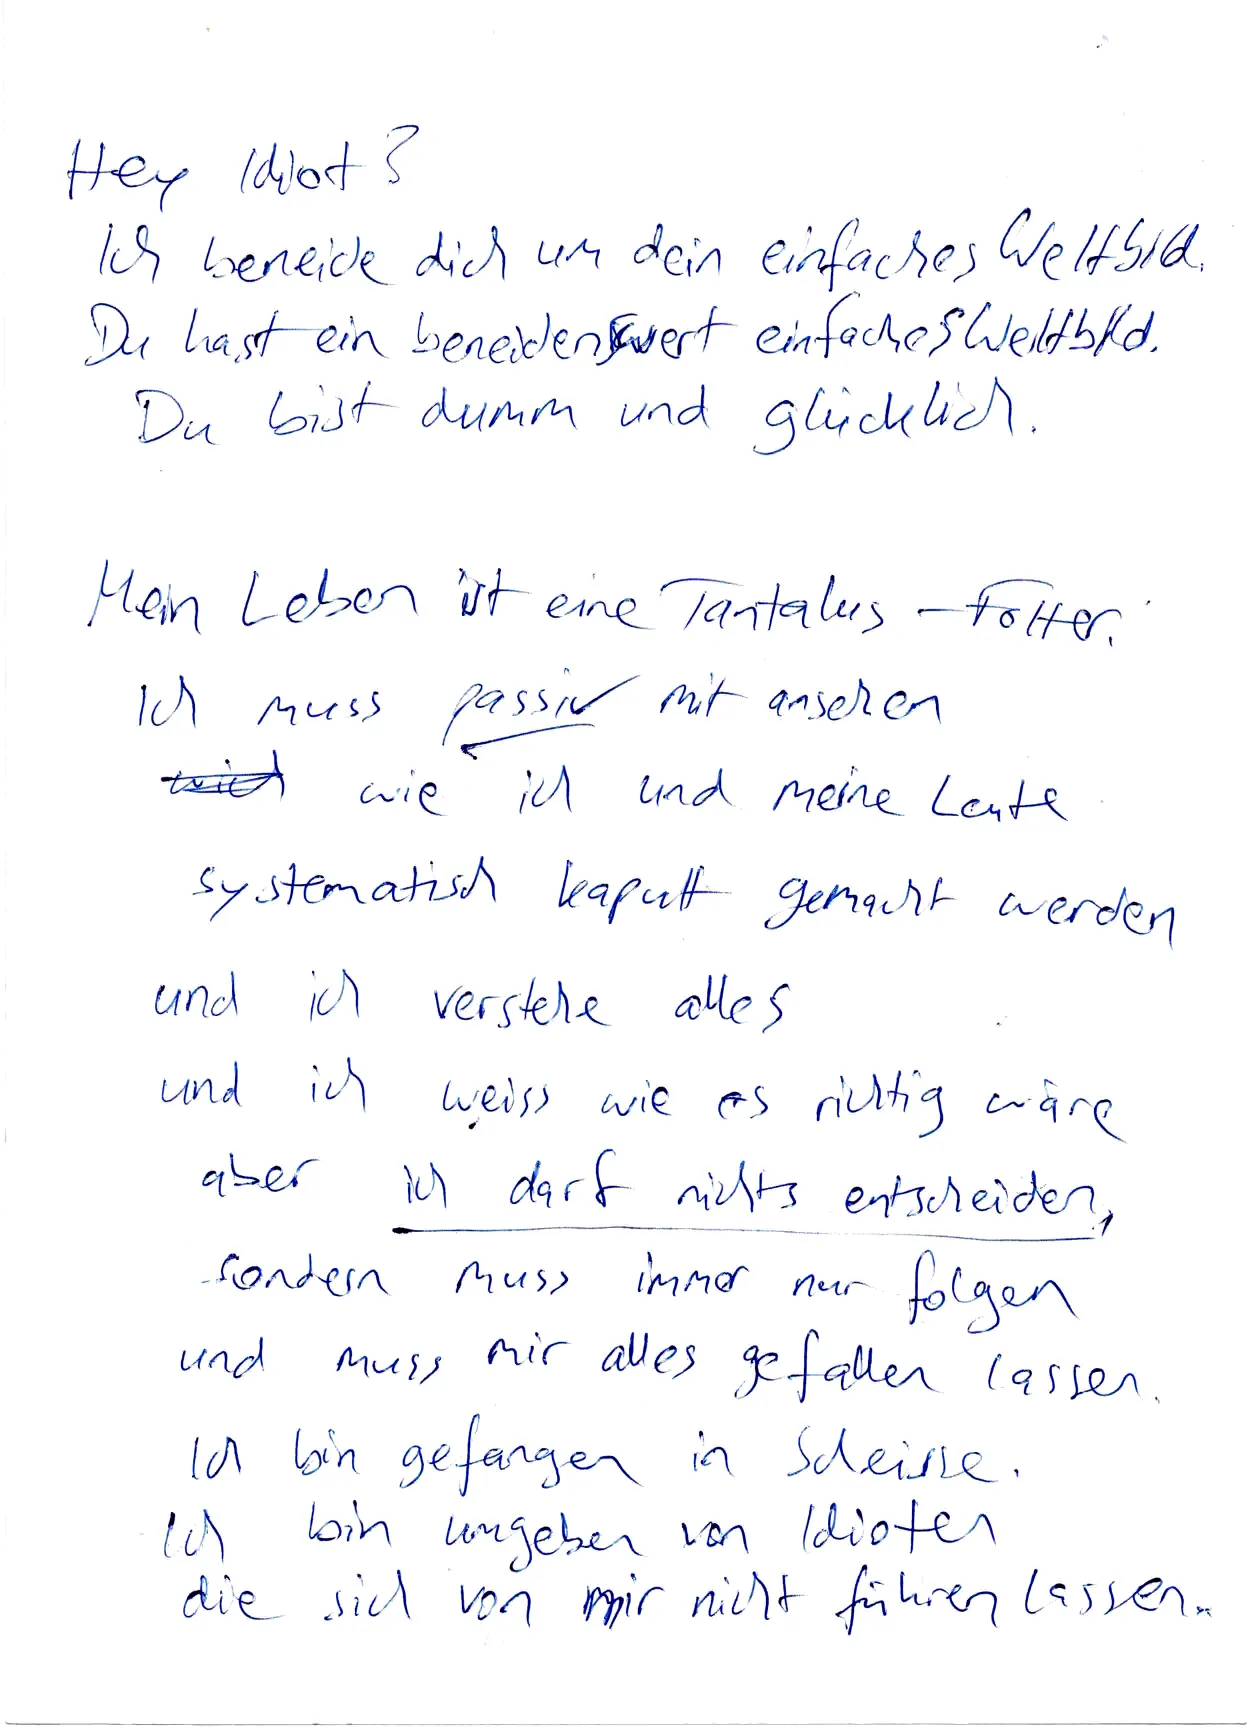 Hey Idiot?
Ich beneide dich um dein einfaches Weltbild.
Du hast ein beneidenswert einfaches Weltbild.
Du bist dumm und glücklich.
Mein Leben ist eine Tantalus-Folter.
Ich muss passiv mit ansehen
wie ich und meine Leute
systematisch kaputt gemacht werden
und ich verstehe alles
und ich weiss wie es richtig wäre
aber ich darf nichts entscheiden,
sondern muss immer nur folgen
und muss mir alles gefallen lassen.
Ich bin gefangen in Scheisse.
Ich bin umgeben von Idioten
die sich von mir nicht führen lassen..